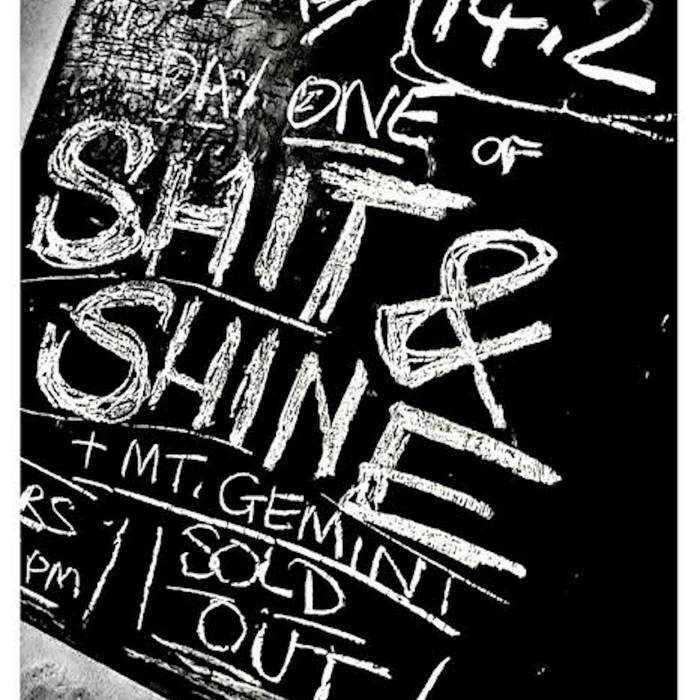 14.2
DAY ONE OF
SHIT &
SHINE
+ MT. GEMINI
RS
PM
SOLD
OUT